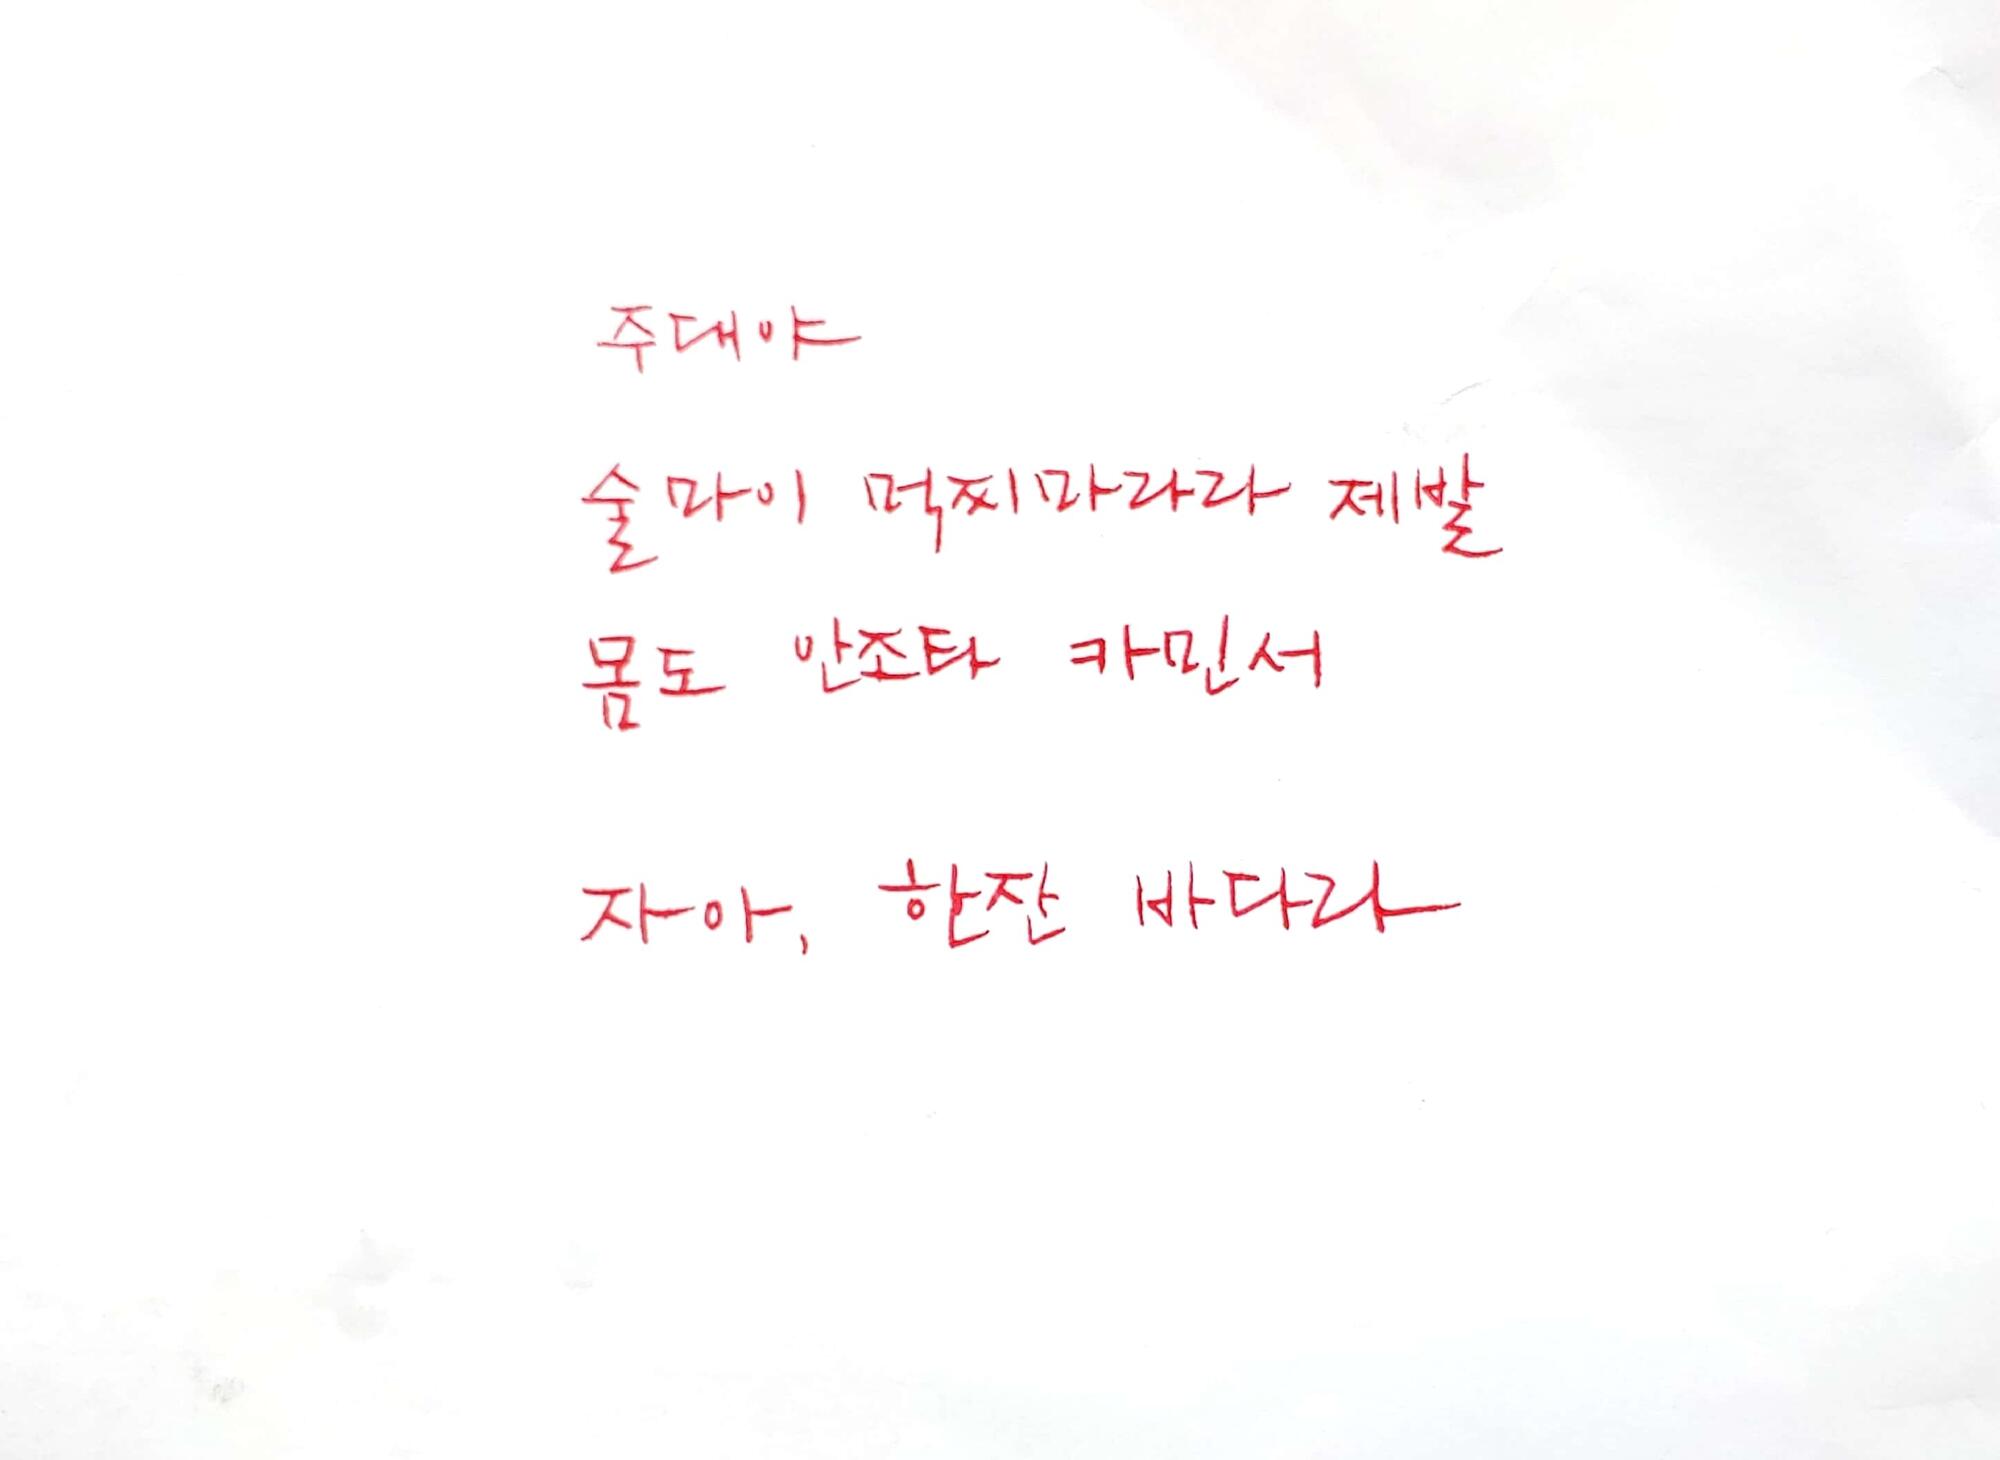 주대야
술마이 먹찌마라라 제발
몸도 안조타 카민서
자아, 한잔 바다라